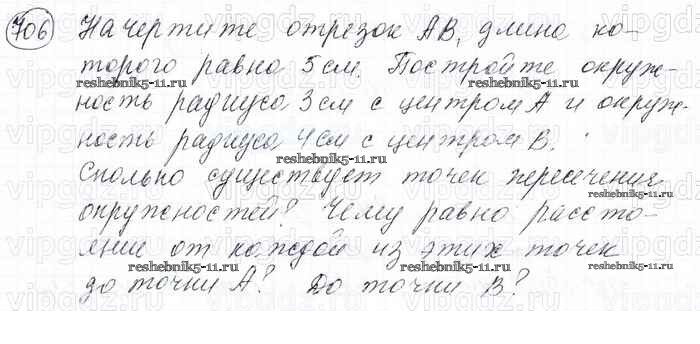 706 Начертите отрезок АВ, длина ко-
торого равна 5 см. Постройте окруж-
reshebnik5-11.ru
reshebnik5-11.ru
ность радиуса 3 см с центром А и окруж-
ность радиуса 4 см с центром В.
reshebnik5-11.ru
Сколько существует точек пересечения
reshebnik5-11.ru
окружностей? Чему равно рассто-
янии от каждой из этих точек
reshebnik5-11.ru
reshebnik5-11.ru
до точки А? До точки В?